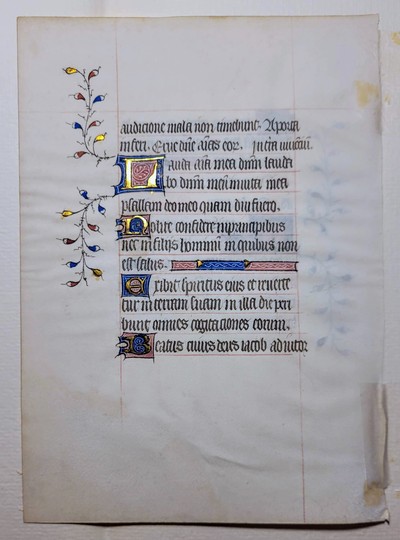 audicione mala non timebunt. A porta
inferi. Erue dñe aĩas eor.
Lauda aĩa mea dnm lauda
bo dnm meũ in vita mea
psallam deo meo quam diu fuero.
Nolite confidere in principibus
nec in filijs hominũ in quibus non
est salus.
Exibit spiritus eius et reverte
tur in terram suam in illa die peri
bunt omnes cogitaciones eorum.
Beatus cuius deus iacob adiutor